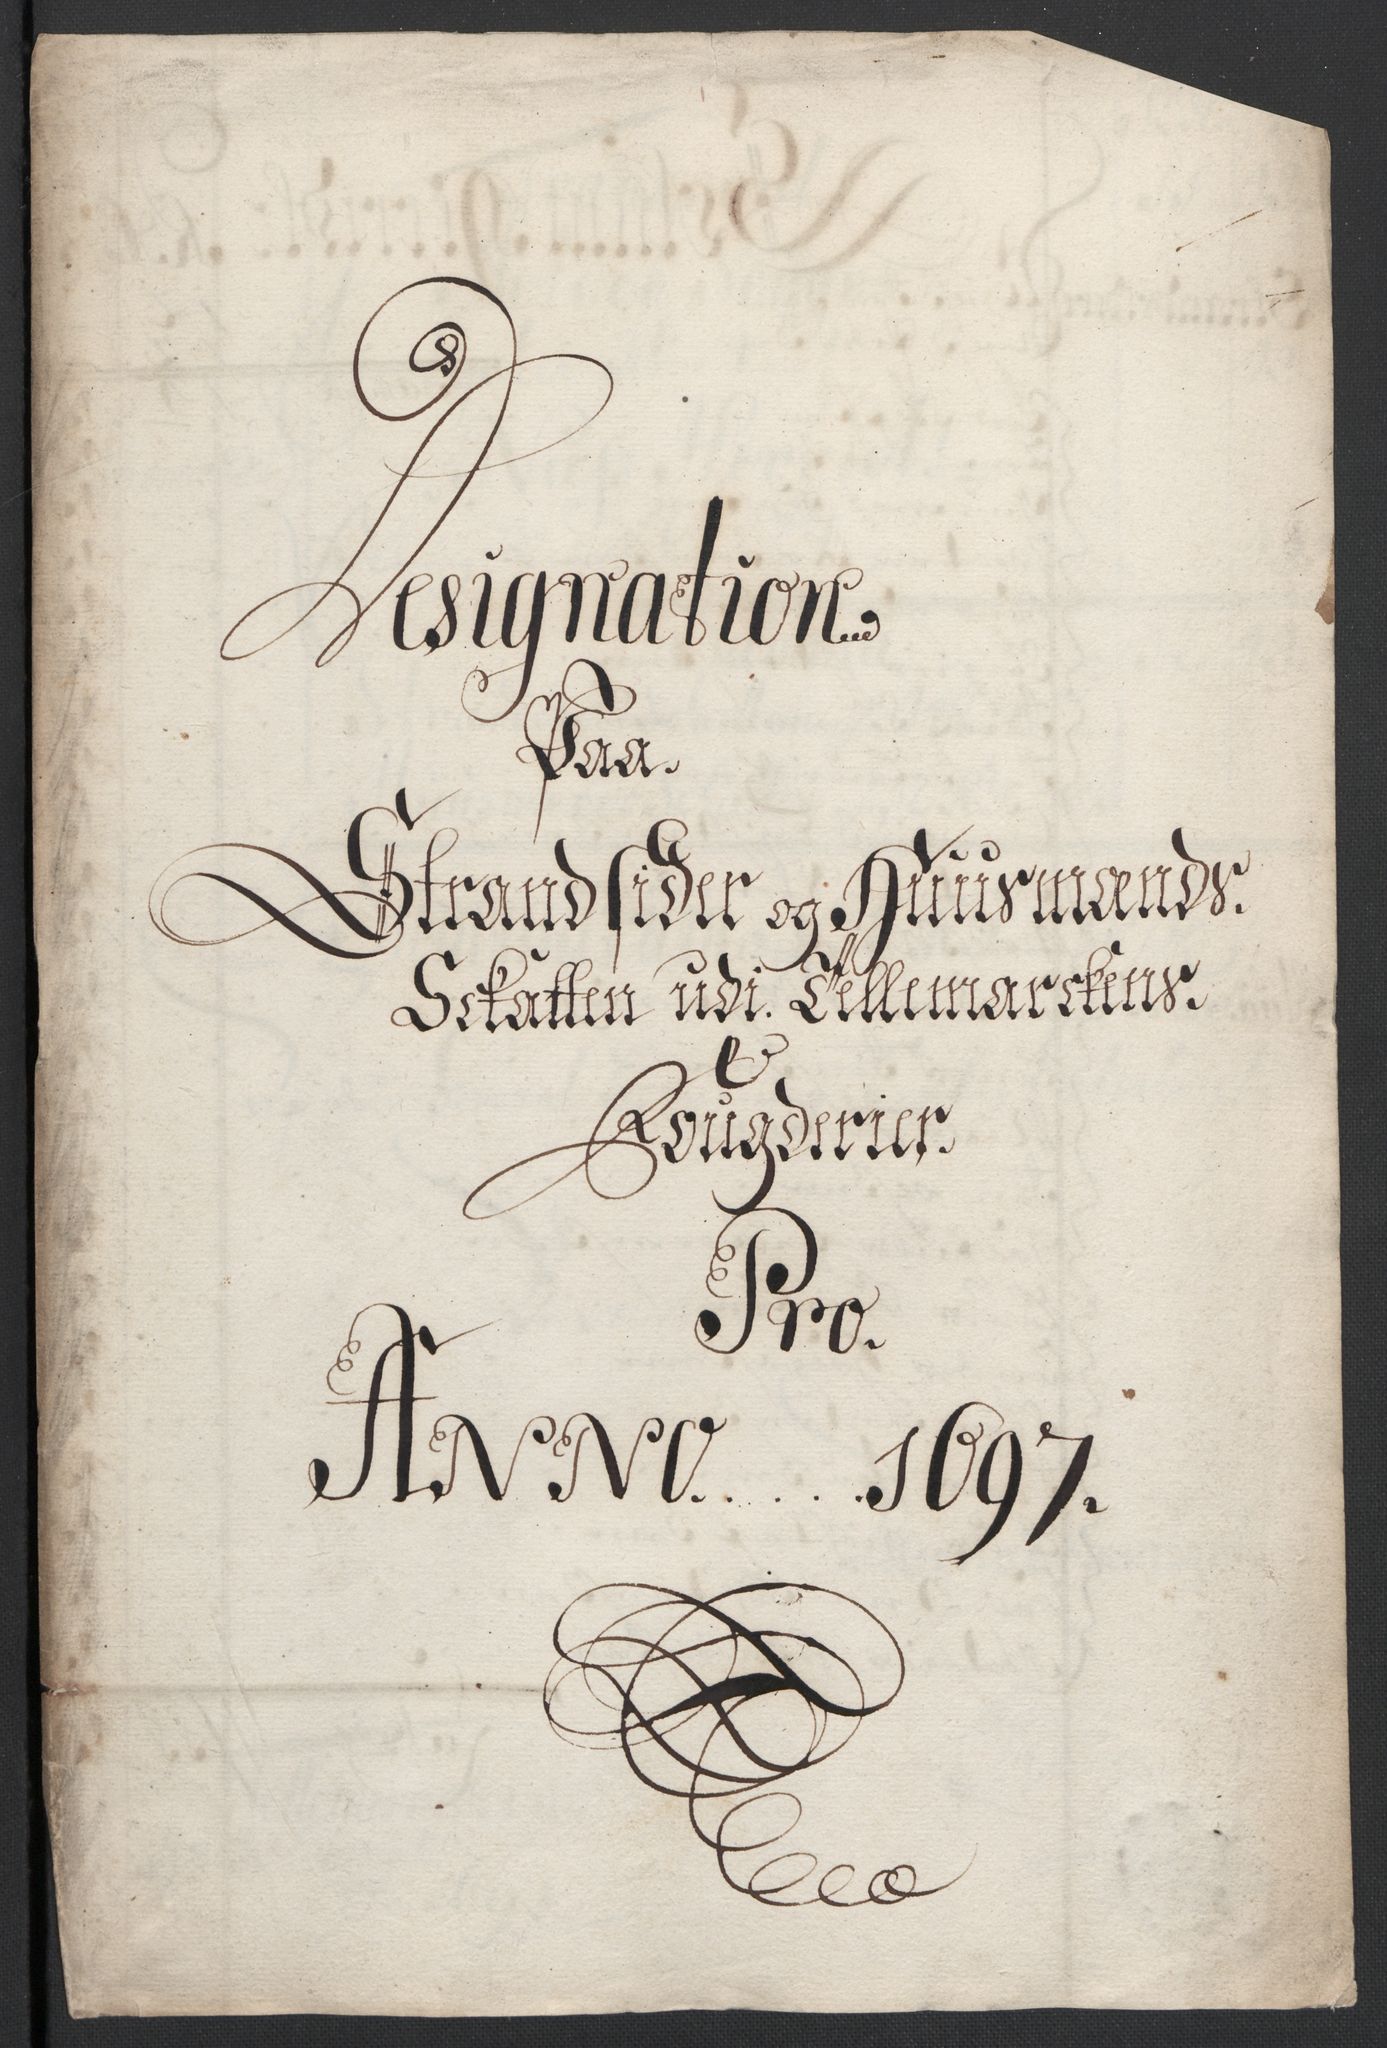 Designation
Paa.
Strandsider og Huusmænds.
Schatten udi. Tellemarckens.
Fougderier.
Pro.
Anno. . . . . 1697.